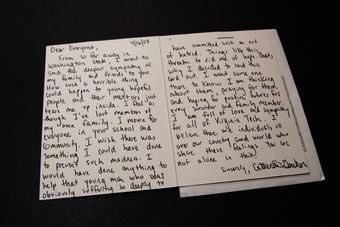 Dear Everyone, 4/16/07
From so far away in
Washington state, I want to
send the deepest sympathy of
my family and friends to you.
How such a horrible thing
could happen to young hopeful
people and their mentors just
tears me up inside. I feel as
though I've lost members of
my own family. I mourn for
everyone in your school and
community. I wish there was
something I could have done
to prevent such madness. I
would have done anything to
help that young man who was
obviously suffering so deeply to
have committed such an act
of hatred. Things like this
threaten to rid me of hope. That's
why I decided to send this
card out. I want some one
there to know I am thinking
about them, praying for them
and hoping for positive things for
every survivor and family member.
I am full of love and sympathy
for all of Virginia Tech. I
believe there are individuals all
over our country and world who
share these feelings. You are
not alone in this!
Sincerely,